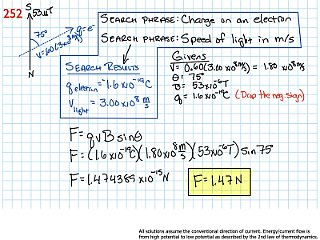 252
S 53uT
75°
q=e⁻
V=0.60(3x10⁸m/s)
N
SEARCH PHRASE: Charge on an electron
SEARCH PHRASE: Speed of light in m/s
SEARCH RESULTS
q electron = -1.6x10⁻¹⁹C
V light = 3.00x10⁸ m/s
Givens
V= 0.60(3.00x10⁸m/s) = 1.80 x10⁸m/s
θ= 75°
B= 53x10⁻⁶T
q= 1.6x10⁻¹⁹C (Drop the neg. sign)
F=qvBsinθ
F=(1.6x10⁻¹⁹C)(1.80x10⁸m/s)(53x10⁻⁶T)sin75
F=1.474389x10⁻¹⁵N
F=1.47N
All solutions assume the conventional direction of current. Energy/current flow is
from high potential to low potential as described by the 2nd law of thermodynamics.